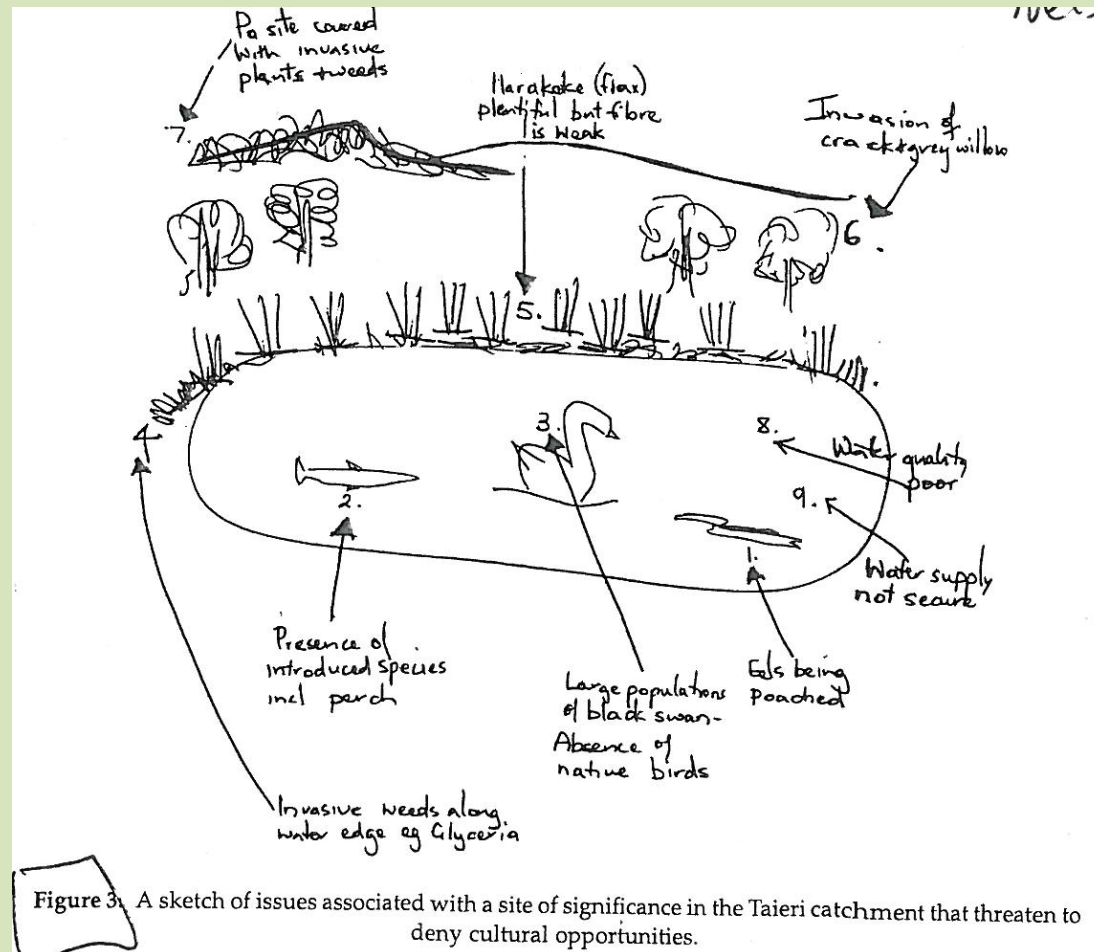 Pa site covered
with invasive
plants + weeds
Harakeke (flax)
plentiful but fibre
is weak
Invasion of
crack + grey willow
7.
6.
5.
4
3.
8.
Water quality
poor
2.
9.
1.
Water supply
not secure
Presence of
introduced species
incl perch
Large populations
of black swan-
Absence of
native birds
Eels being
poached
Invasive weeds along
water edge eg Glyceria
Figure 3. A sketch of issues associated with a site of significance in the Taieri catchment that threaten to
deny cultural opportunities.